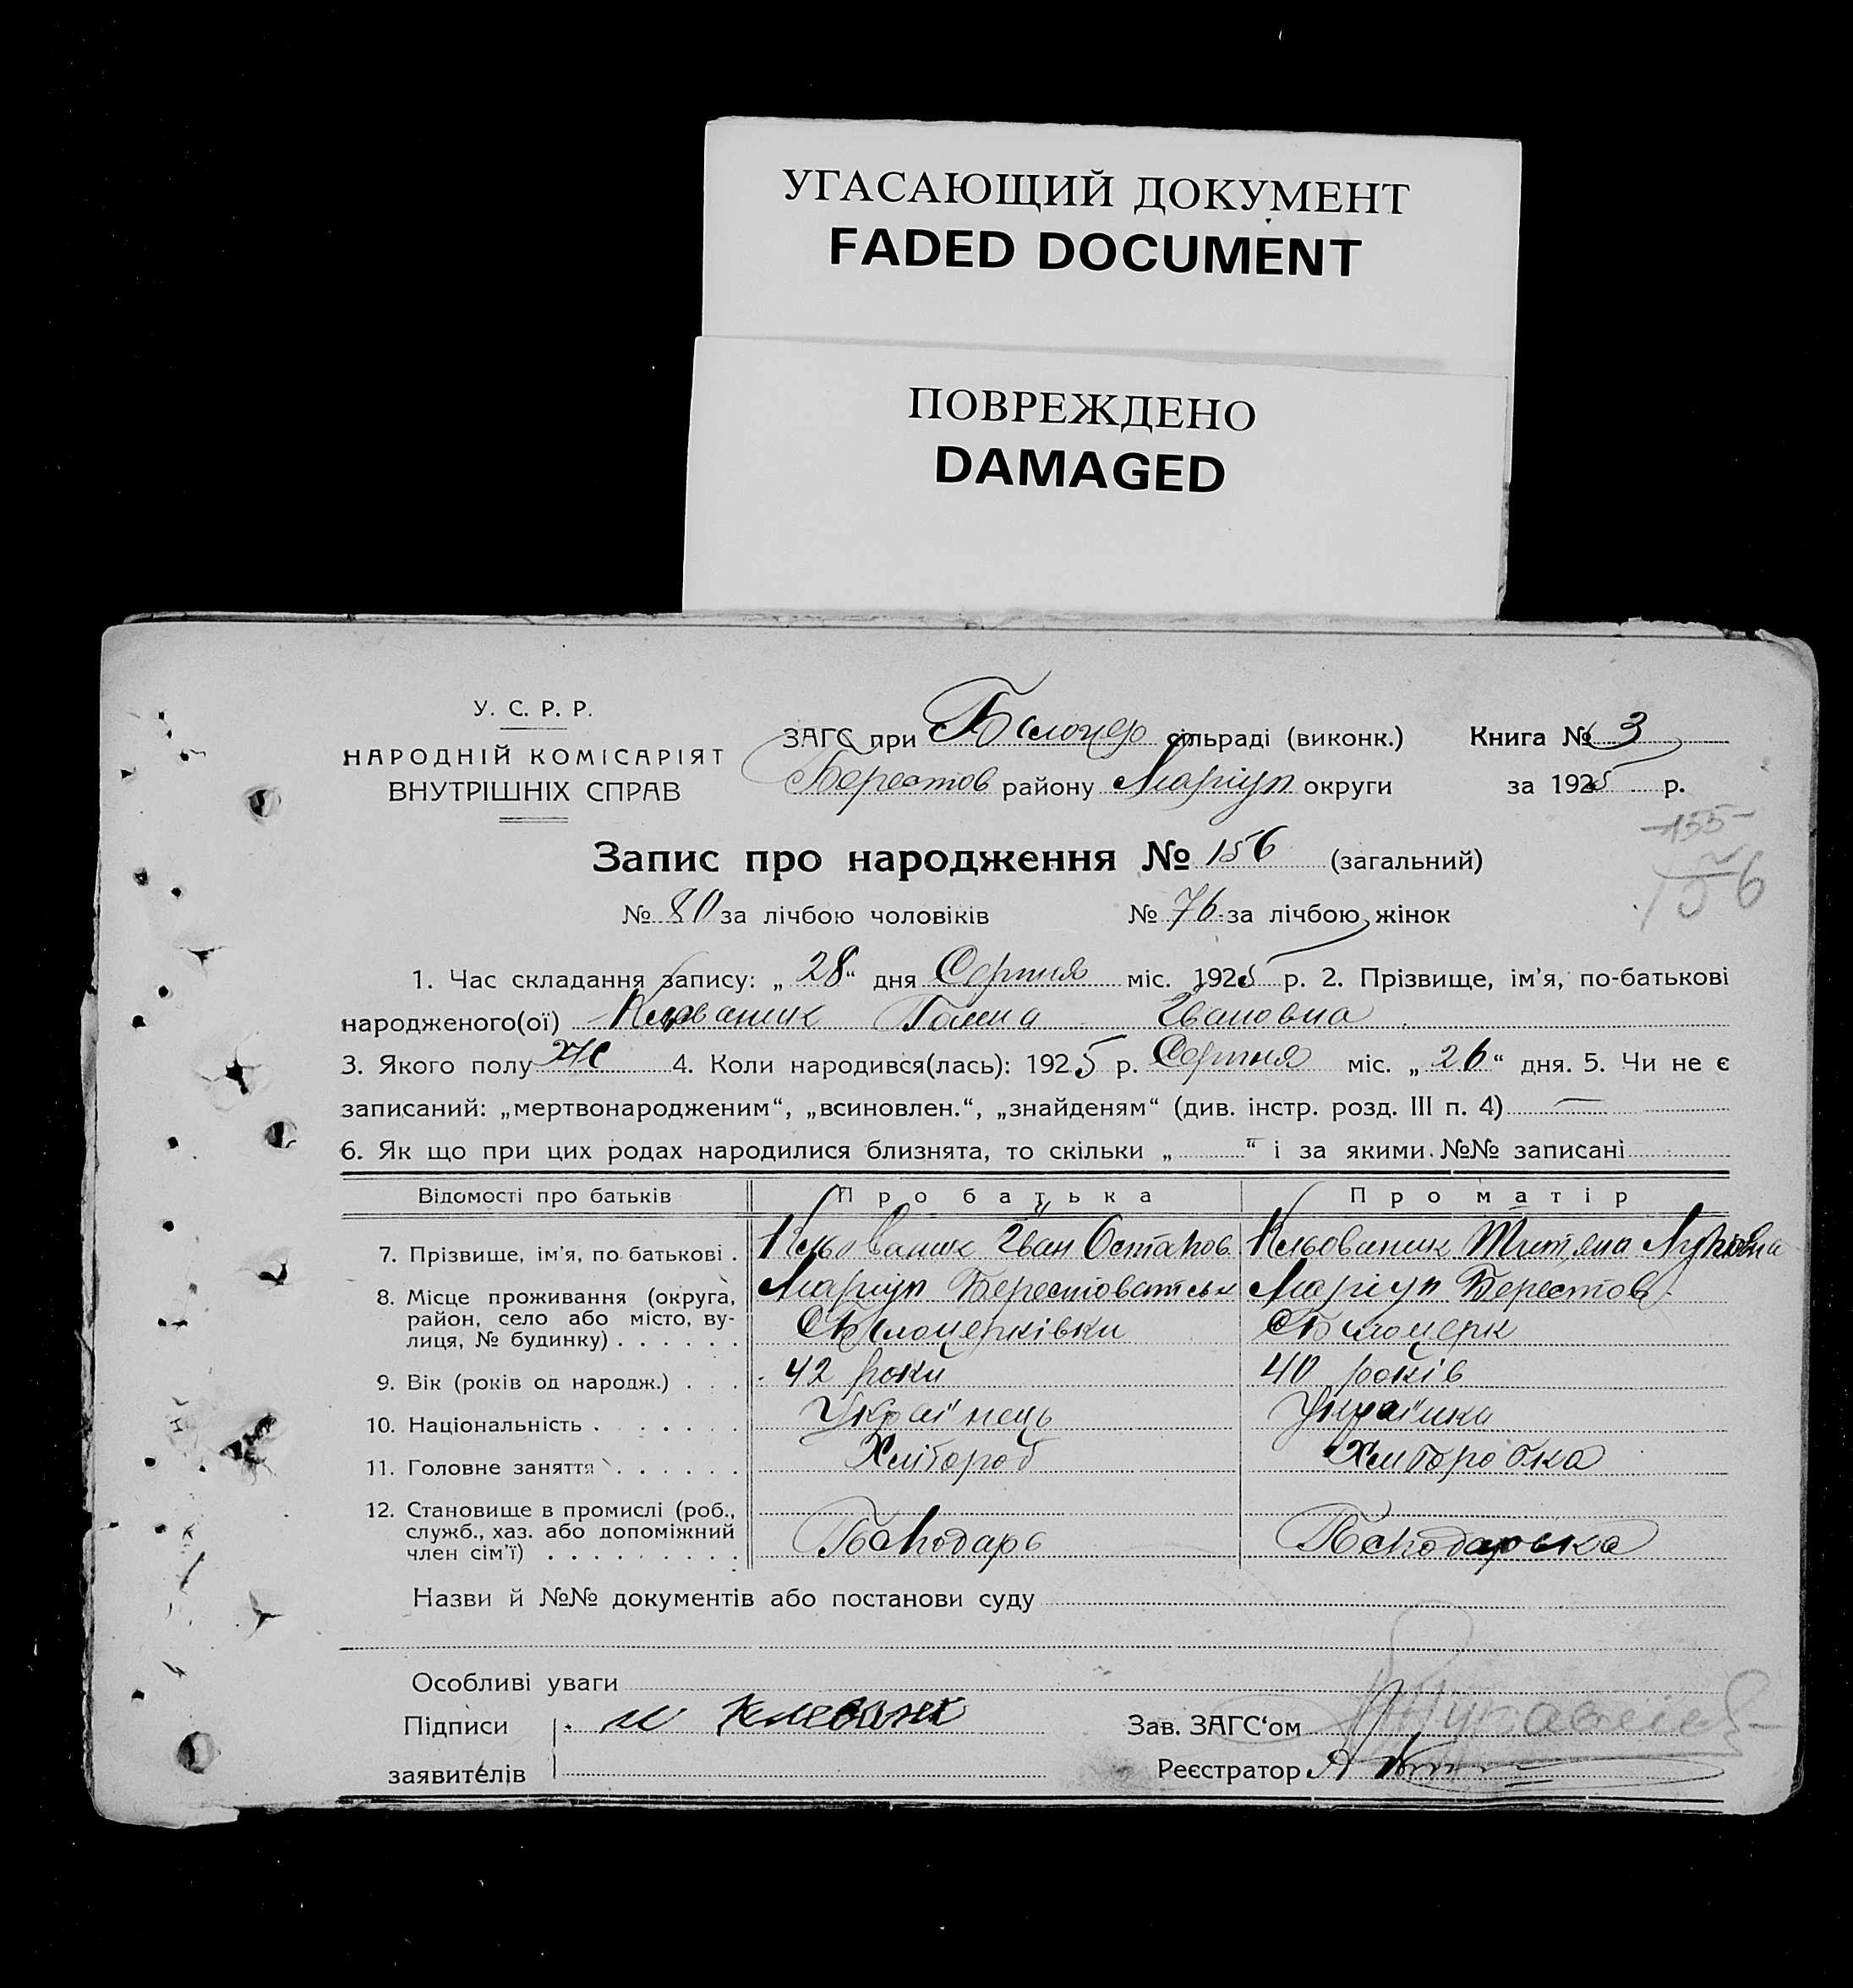 УГАСАЮЩИЙ ДОКУМЕНТ
FADED DOCUMENT
ПОВРЕЖДЕНО
DAMAGED
У. С. Р. Р.
НАРОДНІЙ КОМІСАРІЯТ
ВНУТРІШНІХ СПРАВ
ЗАГС при Білоцер сільраді (виконк.) Книга № 3
Берестов району Маріуп округи за 1925 р.
-155-
Запис про народження № 156 (загальний)
156
№ 80 за лічбою чоловіків № 76 за лічбою жінок
1. Час складання запису: „28“ дня Серпня міс. 1925 р. 2. Прізвище, ім'я, по-батькові
народженого(ої) Галина Івановна
3. Якого полу Ж 4. Коли народився(лась): 1925 р. Серпня міс. „26“ дня. 5. Чи не є
записаний: „мертвонародженим“, „всиновлен.“, „знайденям“ (див. інстр. розд. III п. 4) —
6. Як що при цих родах народилися близнята, то скільки „ “ і за якими №№ записані
Відомості про батьків Про батька Про матір
7. Прізвище, ім'я, по батькові . Іван Остапов
8. Місце проживання (округа, Маріуп Маріуп Берестов.
район, село або місто, ву-
лиця, № будинку) . . . . . . Білоцерківки Білоцерк
9. Вік (років од народж.) . . . 42 роки 40 років
10. Національність . . . . . . . Українець Українка
11. Головне заняття . . . . . . Хлібороб Хліборобка
12. Становище в промислі (роб.,
служб., хаз. або допоміжний
член сім'ї) . . . . . . . . . Господарь Господарька
Назви й №№ документів або постанови суду
Особливі уваги
Підписи
Зав. ЗАГС‘ом
заявителів
Реєстратор